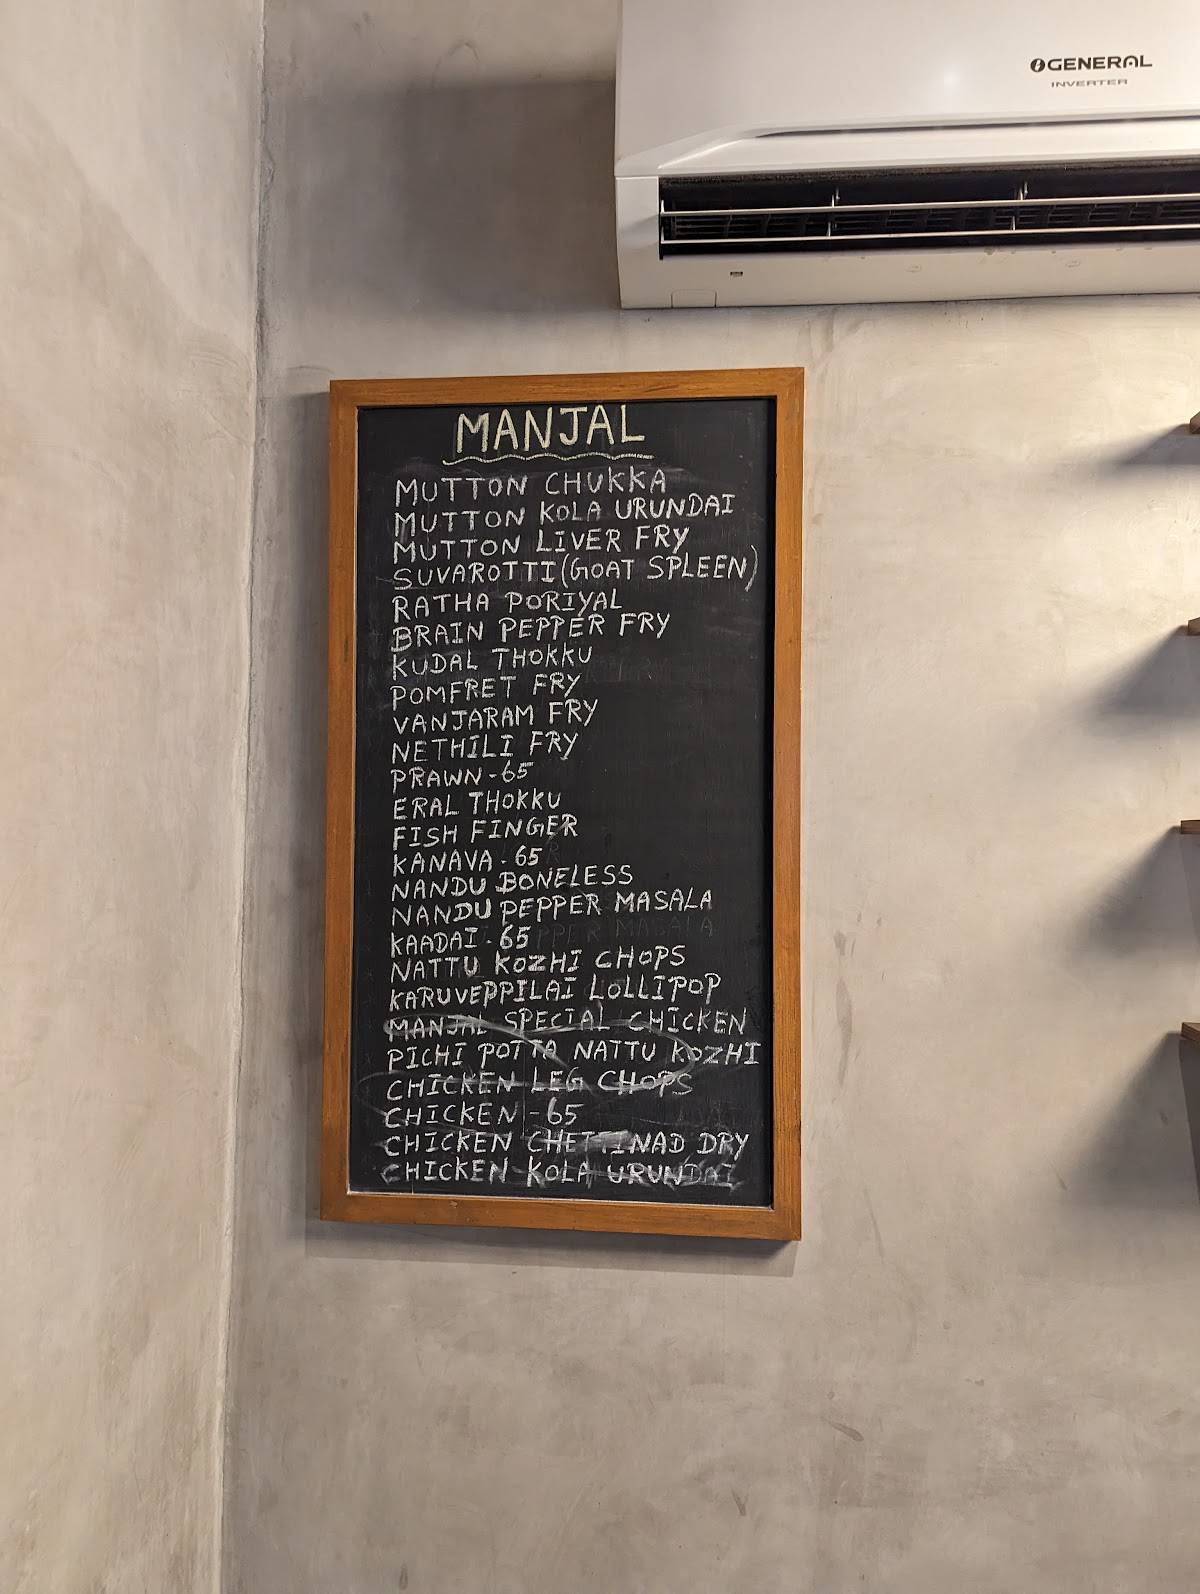 GENERAL
INVERTER
MANJAL
MUTTON CHUKKA
MUTTON KOLA URUNDAI
MUTTON LIVER FRY
SUVAROTTI (GOAT SPLEEN)
RATHA PORIYAL
BRAIN PEPPER FRY
KUDAL THOKKU
POMFRET FRY
VANJARAM FRY
NETHILI FRY
PRAWN - 65
ERAL THOKKU
FISH FINGER
KANAVA - 65
NANDU BONELESS
NANDU PEPPER MASALA
KAADAI - 65
NATTU KOZHI CHOPS
KARUVEPPILAI LOLLIPOP
MANJAL SPECIAL CHICKEN
PICHI POTTA NATTU KOZHI
CHICKEN LEG CHOPS
CHICKEN - 65
CHICKEN CHETTINAD DRY
CHICKEN KOLA URUNDAI